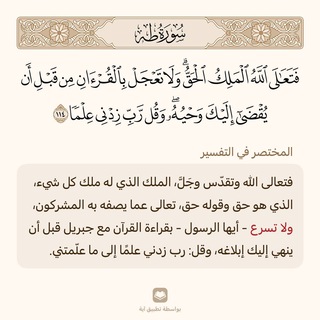 سُورَةُ طه
فَتَعَٰلَى ٱللَّهُ ٱلْمَلِكُ ٱلْحَقُّ ۗ وَلَا تَعْجَلْ بِٱلْقُرْءَانِ مِن قَبْلِ أَن
يُقْضَىٰٓ إِلَيْكَ وَحْيُهُۥ ۖ وَقُل رَّبِّ زِدْنِى عِلْمًا ١١٤
المختصر في التفسير
فتعالى الله وتقدّس وجَلَّ، الملك الذي له ملك كل شيء،
الذي هو حق وقوله حق، تعالى عما يصفه به المشركون،
ولا تسرع - أيها الرسول - بقراءة القرآن مع جبريل قبل أن
ينهي إليك إبلاغه، وقل: رب زدني علمًا إلى ما علّمتني.
بواسطة تطبيق آية